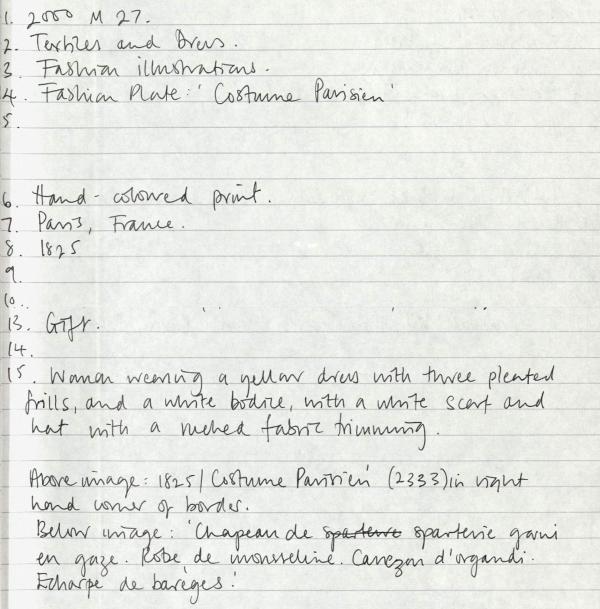 1. 2000 M 27.
2. Textiles and Dress.
3. Fashion illustrations.
4. Fashion Plate: 'Costume Parisien'
5.
6. Hand-coloured print.
7. Paris, France.
8. 1825
9.
10.
13. Gift.
14.
15. Woman wearing a yellow dress with three pleated
frills, and a white bodice, with a white scarf and
hat with a ruched fabric trimming.
Above image: 1825/Costume Parisien' (2333) in right
hand corner of border.
Below image: 'Chapeau de sparterie garni
en gaze. Robe de mousseline. Canezou d'organdi.
Echarpe de barèges.'